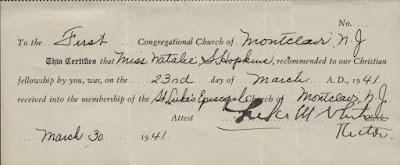 No.
To the First Congregational Church of Montclair, N.J.
This Certifies that Miss Natalie S. Hopkins, recommended to our Christian
fellowship by you, was, on the 23rd day of March A. D., 1941
received into the membership of the St. Luke's Episcopal Church of Montclair, N.J.
Attest Luke M. White
March 30 1941. Rector.